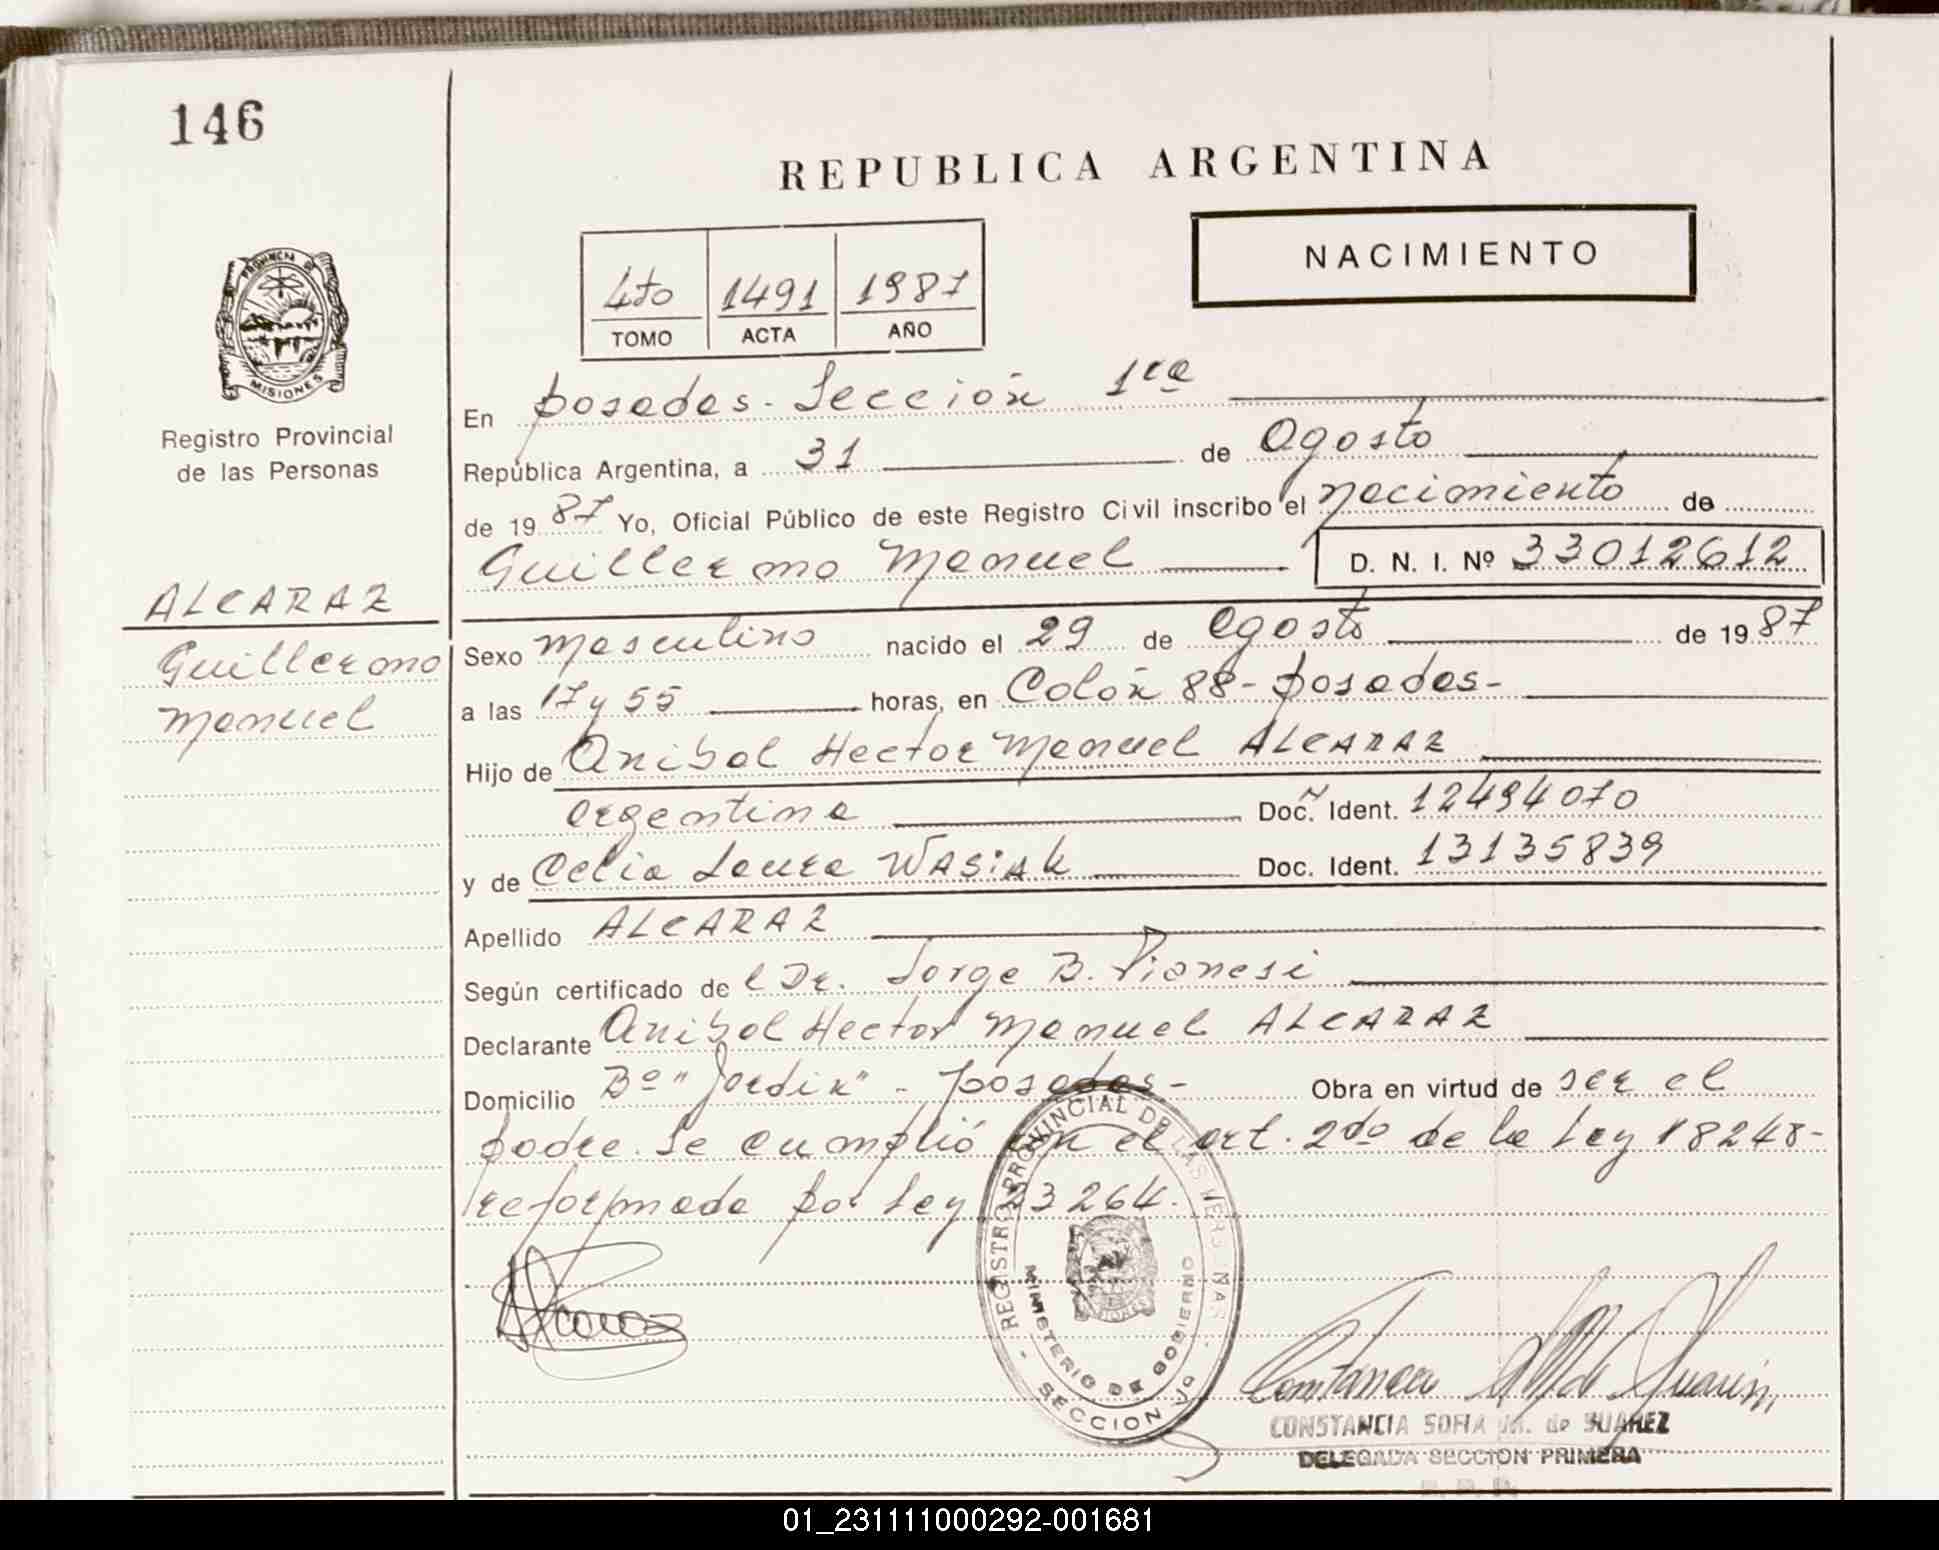 146
REPUBLICA ARGENTINA
NACIMIENTO
4to 1491 1987
TOMO ACTA AÑO
PROVINCIA DE
MISIONES
Registro Provincial
de las Personas
ALCARAZ
Guillermo
Manuel
En Posadas - Sección 1ra
República Argentina, a 31 de Agosto
de 19 87 Yo, Oficial Público de este Registro Civil inscribo el nacimiento de
Guillermo Manuel D. N. I. Nº 33012612
Sexo masculino nacido el 29 de Agosto de 19 87
a las 17 y 55 horas, en Colón 88 - Posadas -
Hijo de Anibal Hector Manuel ALCARAZ
argentina Doc. Ident. 12494070
y de Celia Laura WASIAK Doc. Ident. 13135839
Apellido ALCARAZ
Según certificado de l Dr. Jorge B.
Declarante Anibal Hector Manuel ALCARAZ
Domicilio Bº "Jardin" - Posadas - Obra en virtud de ser el
padre. Se cumplió con el art. 2do de la Ley 18248 -
reformada por Ley 23264.
REGISTRO PROVINCIAL DE LAS PERSONAS
MINISTERIO DE GOBIERNO
SECCION
CONSTANCIA SOFIA de SUAREZ
DELEGADA SECCION PRIMERA
01_231111000292-001681